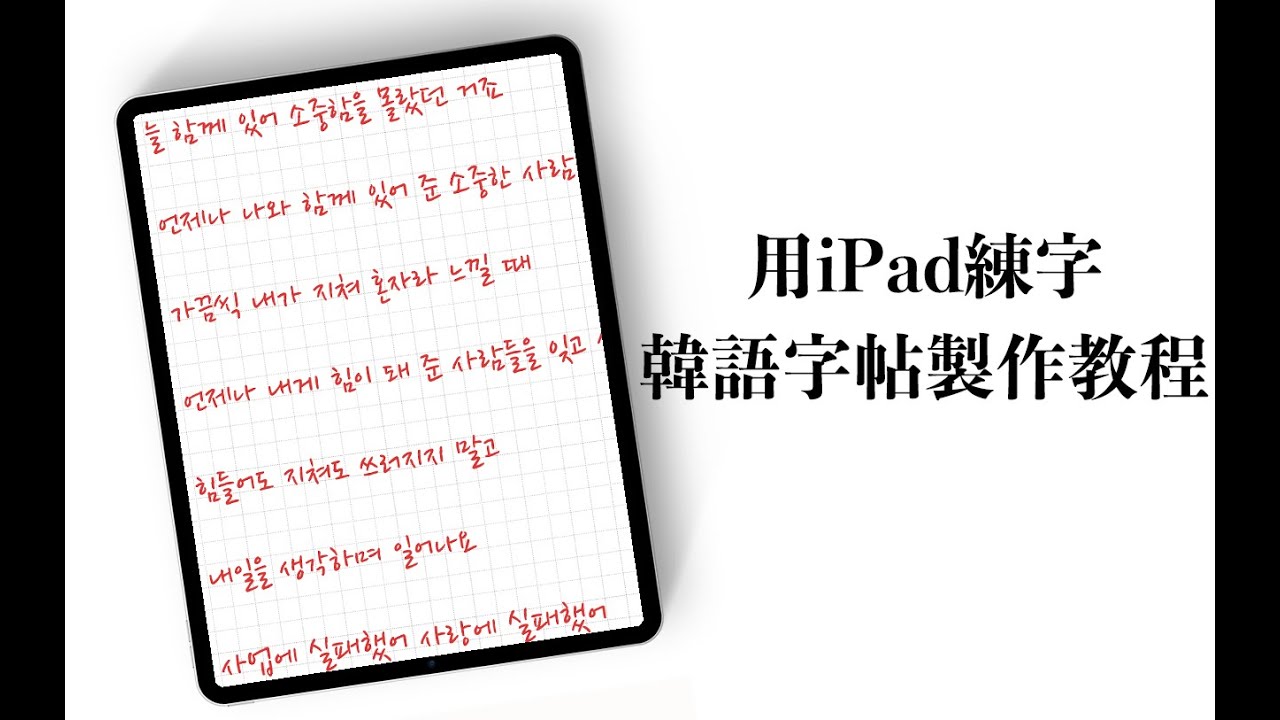 늘 함께 있어 소중함을 몰랐던 거죠
언제나 나와 함께 있어 준 소중한 사람
가끔씩 내가 지쳐 혼자라 느낄 때
언제나 내게 힘이 돼 준 사람들을 잊고
힘들어도 지쳐도 쓰러지지 말고
내일을 생각하며 일어나요
사업에 실패했어 사랑에 실패했어
用iPad練字
韓語字帖製作教程